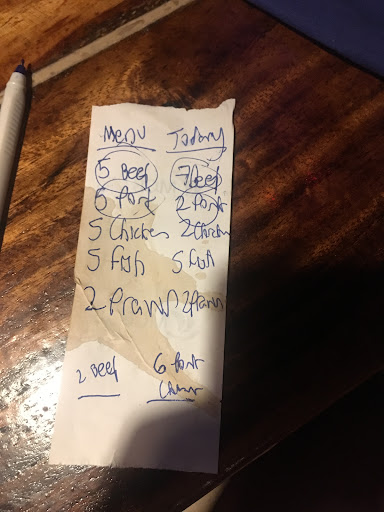 Menu Today
5 Beef 7 Beef
6 Pork 2 Pork
5 Chicken 2 Chicken
5 Fish 5 Fish
2 Prawn 2 Prawn
2 Beef 6 Pork